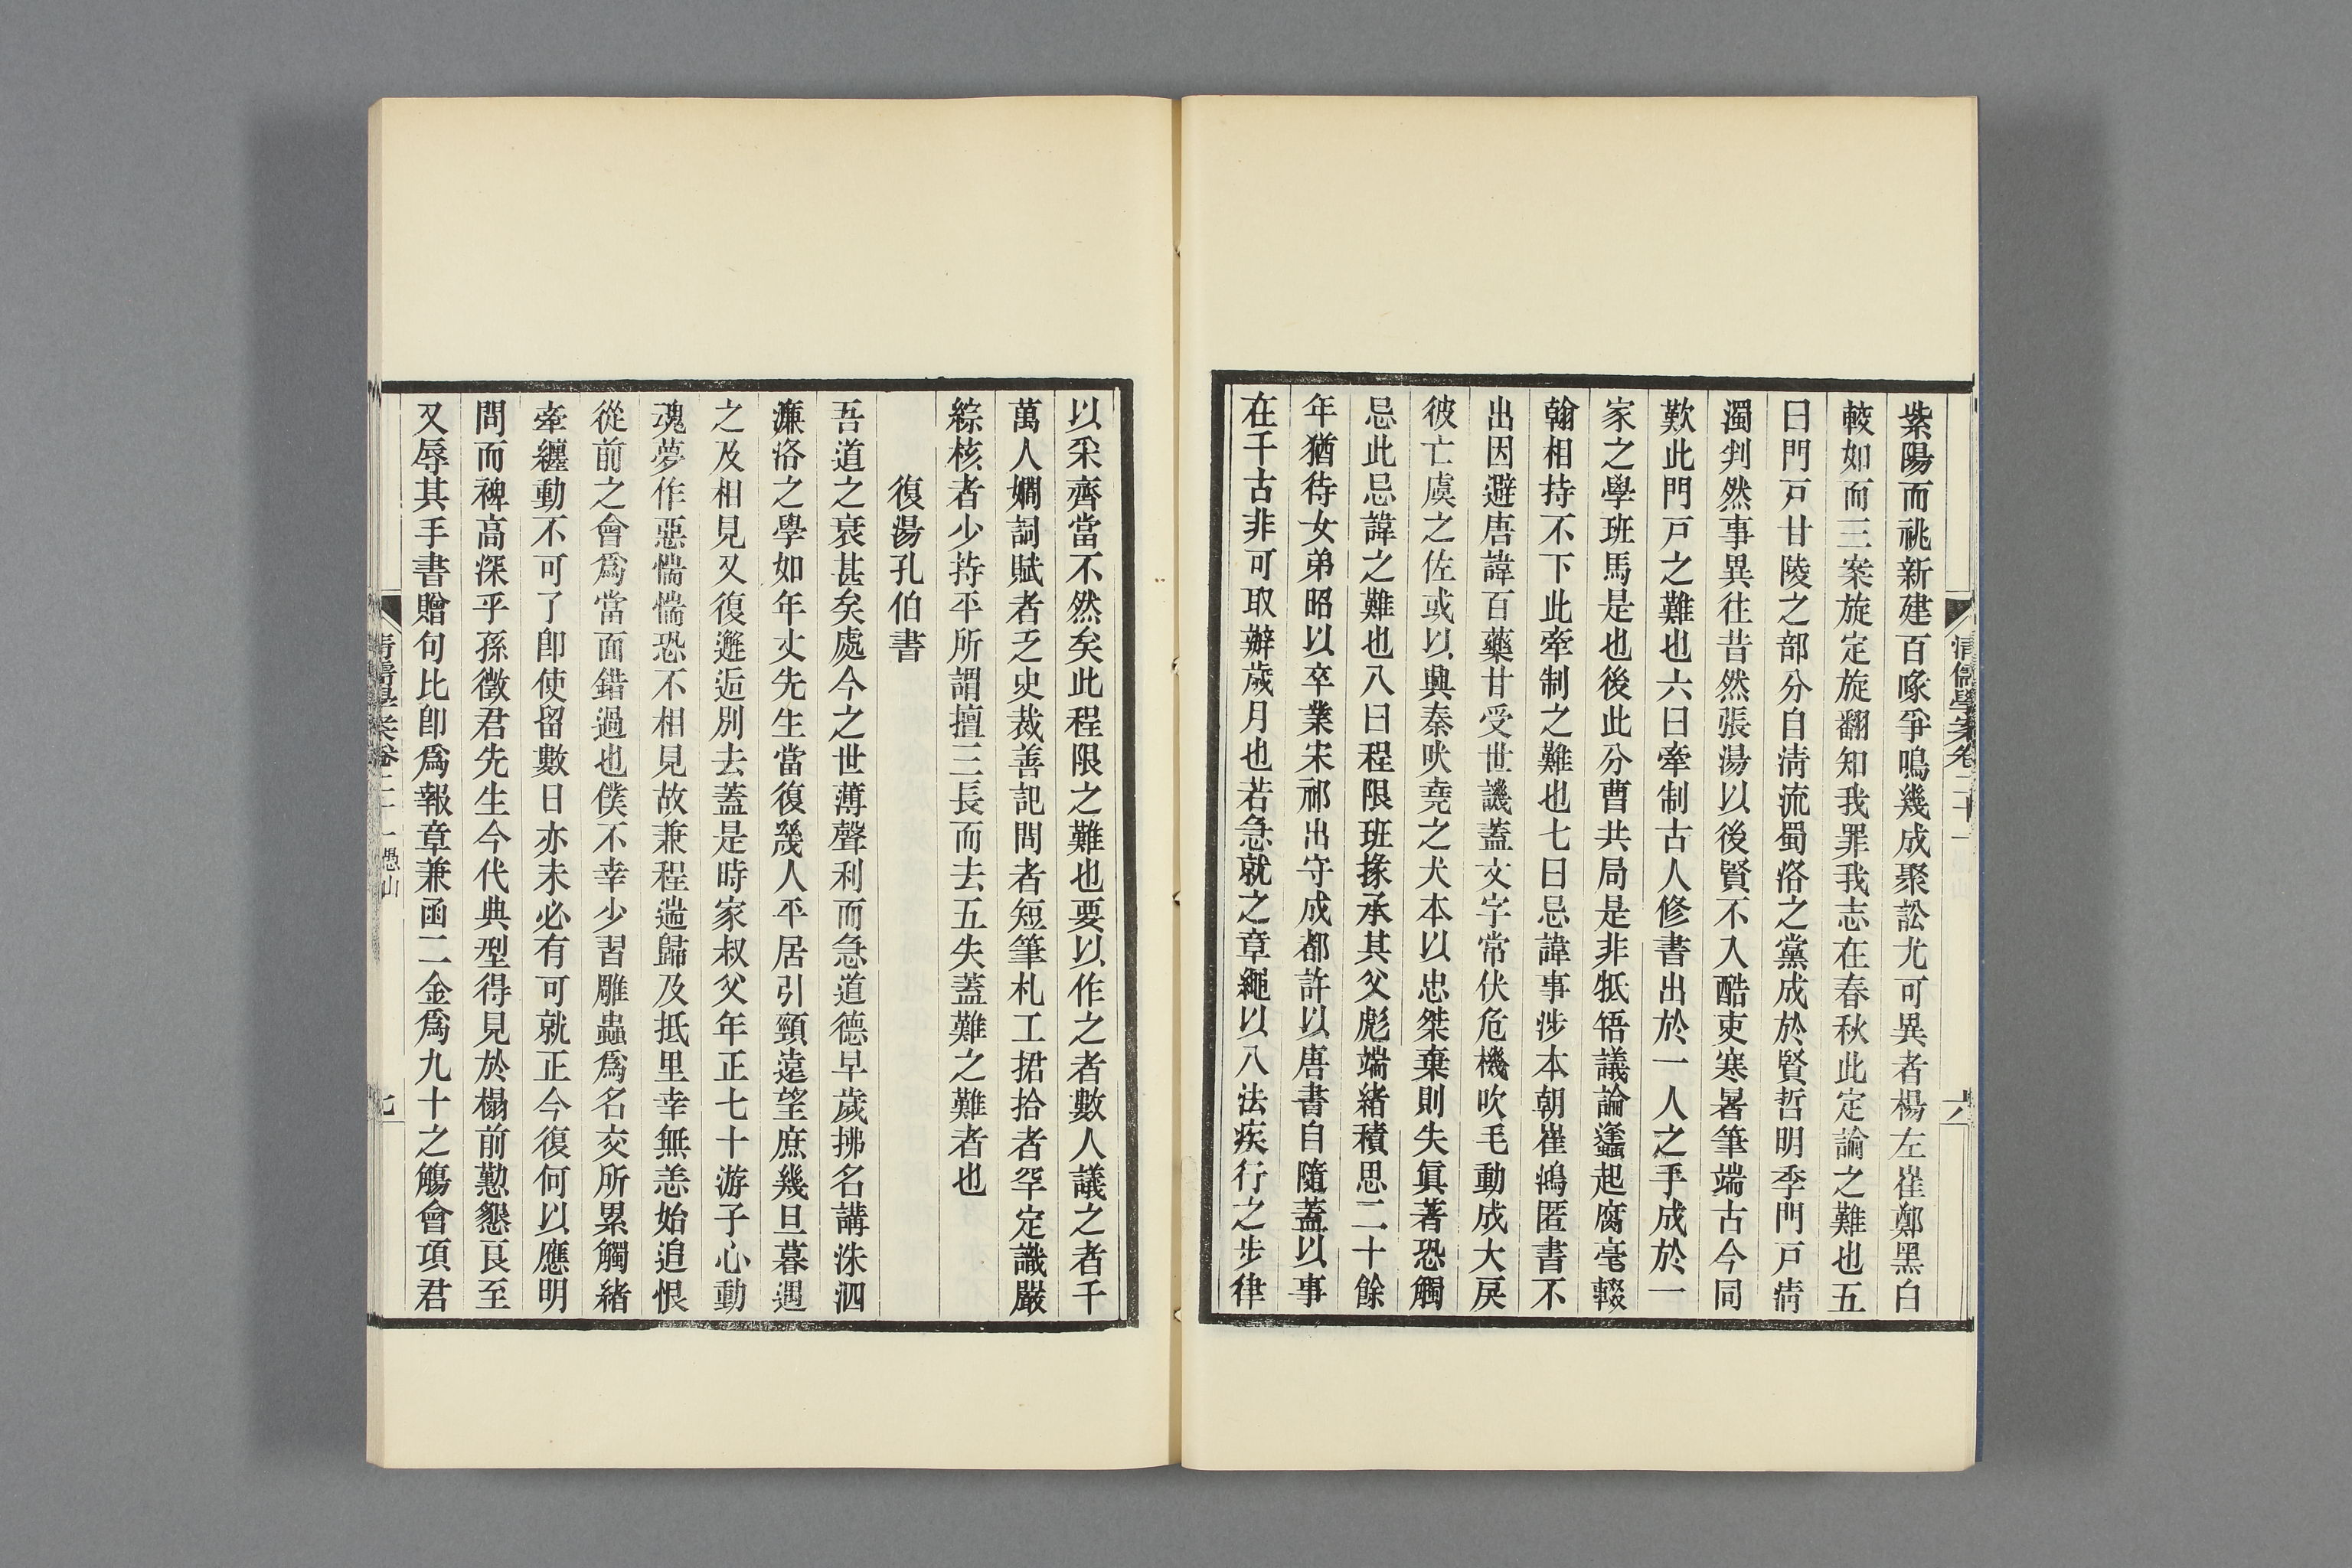 清儒學案卷二十一
六
紫陽而祧新建百喙爭鳴幾成聚訟尤可異者楊左崔鄭黑白
較如而三案旋定旋翻知我罪我志在春秋此定論之難也五
曰門戸甘陵之部分自淸流蜀洛之黨成於賢哲明季門戸淸
濁判然事異往昔然張湯以後賢不入酷吏寒暑筆端古今同
歎此門戸之難也六曰牽制古人修書出於一人之手成於一
家之學班馬是也後此分曹共局是非牴牾議論蠭起腐毫輟
翰相持不下此牽制之難也七曰忌諱事涉本朝崔鴻匿書不
出因避唐諱百藥甘受世譏蓋文字常伏危機吹毛動成大戾
彼亡虞之佐或以興秦吠堯之犬本以忠桀棄則失眞著恐觸
忌此忌諱之難也八曰程限班掾承其父彪端緒積思二十餘
年猶待女弟昭以卒業宋祁出守成都許以唐書自隨蓋以事
在千古非可取辦歲月也若急就之章繩以八法疾行之步律
以采齊當不然矣此程限之難也要以作之者數人議之者千
萬人嫺詞賦者乏史裁善記問者短筆札工捃拾者罕定識嚴
綜核者少持平所謂擅三長而去五失蓋難之難者也
復湯孔伯書
吾道之衰甚矣處今之世薄聲利而急道德早歲拂名講洙泗
濂洛之學如年丈先生當復幾人平居引頸遠望庶幾旦暮遇
之及相見又復邂逅別去蓋是時家叔父年正七十游子心動
魂夢作惡惴惴恐不相見故兼程遄歸及抵里幸無恙始追恨
從前之會爲當面錯過也僕不幸少習雕蟲爲名交所累觸緒
牽纏動不可了卽使留數日亦未必有可就正今復何以應明
問而裨高深乎孫徵君先生今代典型得見於榻前懃懇良至
又辱其手書贈句比卽爲報章兼函二金爲九十之觴會項君
清儒學案卷二十一 愚山
七